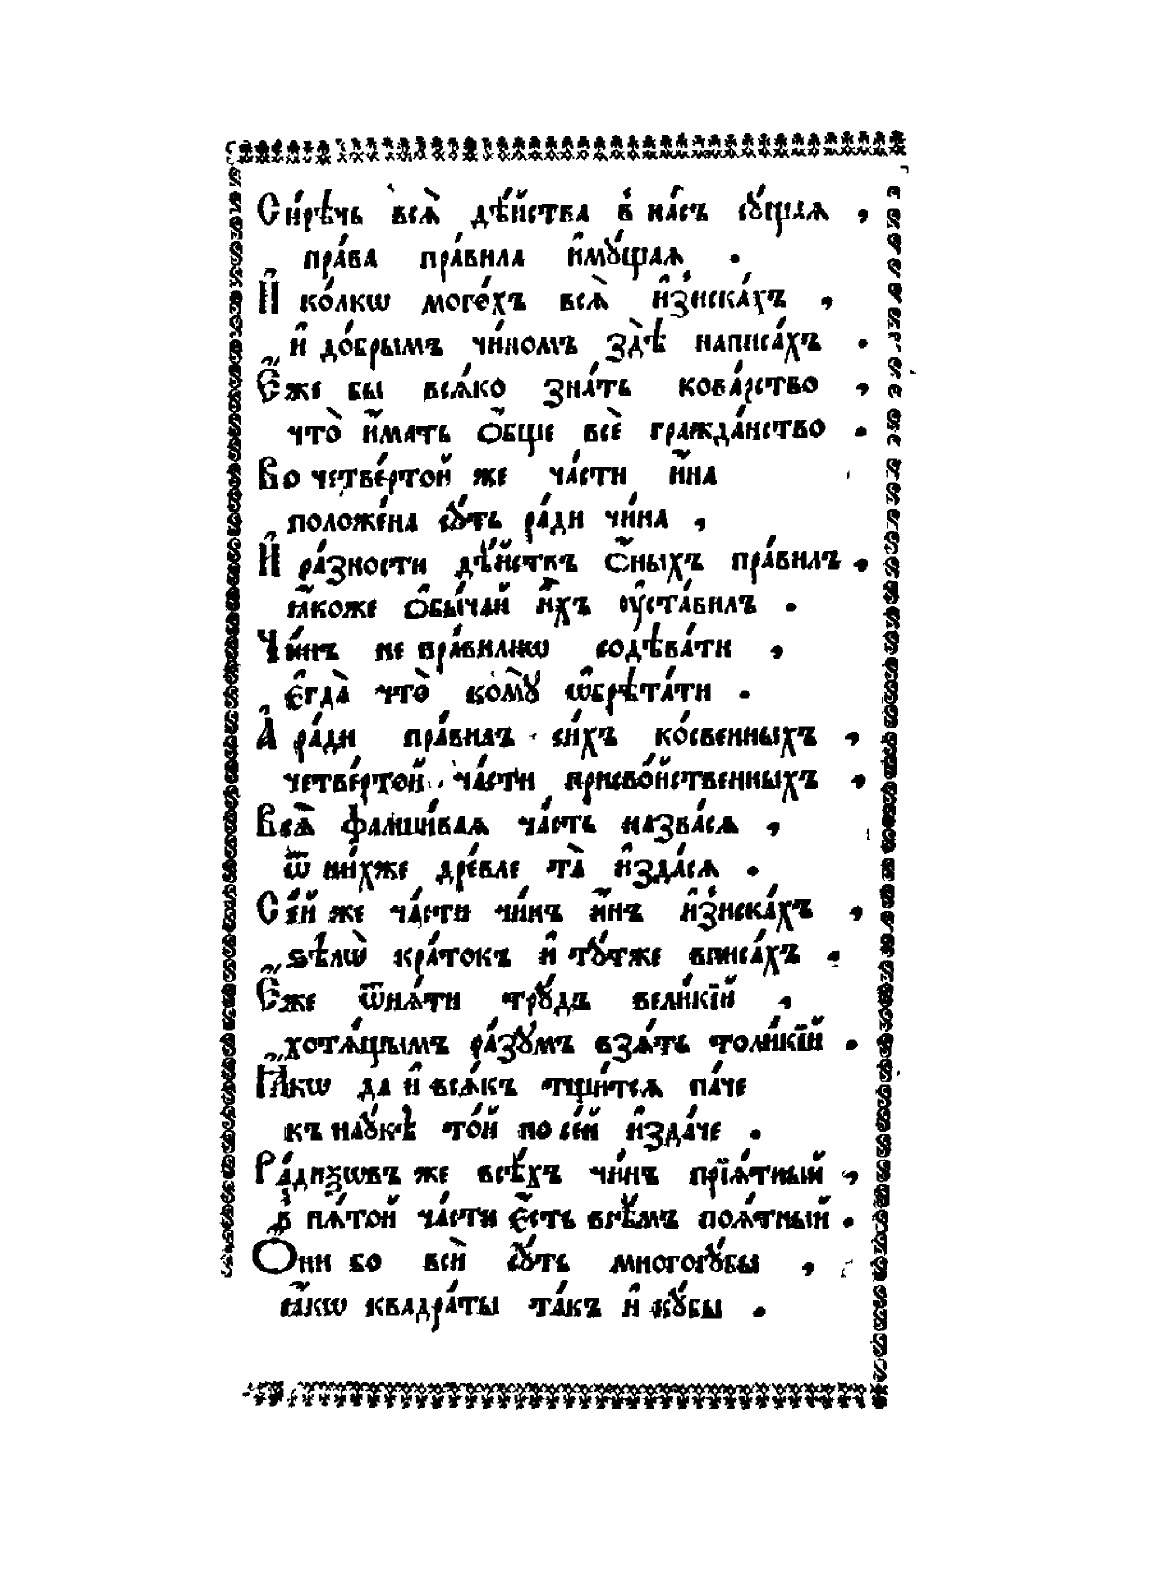 Си́рѣчь всѧ̀ дѣ́йства в́ на́съ сꙋ́щаѧ ,
пра́ва пра́вила и҆мꙋ́щаѧ .
И҆ ко́лкѡ мого́хъ всѧ̀ и҆зыска́хъ ,
и҆ до́брымъ чи́номъ здѣ̀ написа́хъ .
Є҆́же бы всѧ́ко зна́ть кова́рство ,
что̀ и҆́мать ѻ҆́бщє всѐ гражда́нство .
Во четве́ртой же ча́сти и҆́на
положе́на сꙋ́ть ра́ди чи́на ,
И҆ ра́зности дѣ́йствъ ѻ҆́ныхъ пра́вилъ .
ꙗ҆́коже ѻ҆бы́чай и҆́хъ ᲂу҆ста́вилъ .
Чи́нъ не пра́вилнѡ содѣва́ти ,
є҆гда̀ что̀ комꙋ̀ ѡ҆брѣта́ти .
А҆ ра́ди пра́вилъ си́хъ ко́свенныхъ ,
четве́ртой ча́сти присво́йственныхъ ,
Всѧ̀ фалши́ваѧ ча́сть назва́сѧ ,
ѿ ни́хже дре́вле та̀ и҆зда́сѧ .
Се́й же ча́сти чи́нъ и҆́нъ и҆зыска́хъ ,
ѕѣлѡ̀ кра́токъ и҆ тꙋ́тже вписа́хъ .
Є҆́же ѿнѧ́ти трꙋ́дъ вели́кїй ,
хотѧ́щымъ ра́зꙋмъ взѧ́ть толи́кїй .
Ꙗ҆́кѡ да и҆ всѧ́къ тщи́тсѧ па́че
къ наꙋ́кѣ то́й по се́й и҆зда́че .
Ра́диѯѡвъ же всѣ́хъ чи́нъ прїѧ́тный ,
в́ пѧ́той ча́сти є҆́сть всѣ́мъ поѧ́тный .
Ѻни бо всѝ сꙋ́ть многогꙋ́бы ,
ꙗ҆́кѡ квадра́ты та́къ и҆ кꙋ́бы .